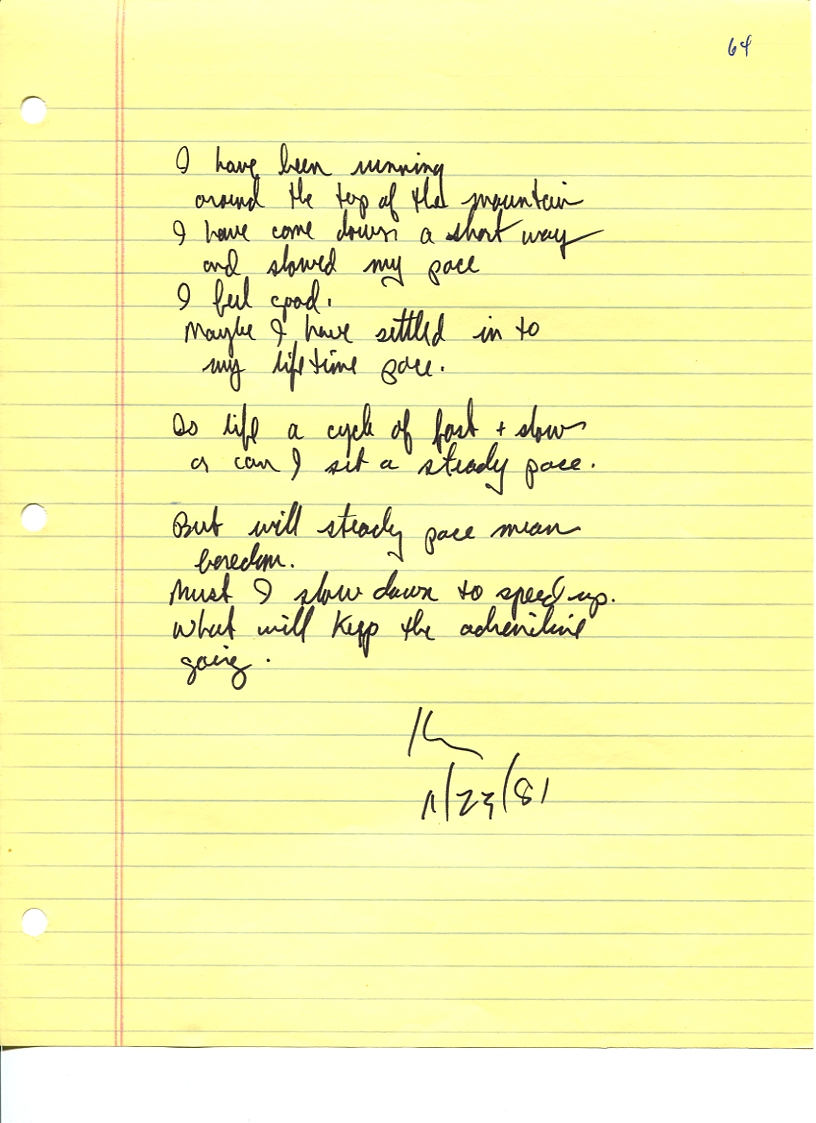 64
I have been running
around the top of the mountain
I have come down a short way
and slowed my pace
I feel good.
Maybe I have settled in to
my lifetime pace.
Is life a cycle of fast + slow
or can I set a steady pace.
But will steady pace mean
boredom.
Must I slow down to speed up.
What will keep the adreniline
going.
11/23/81